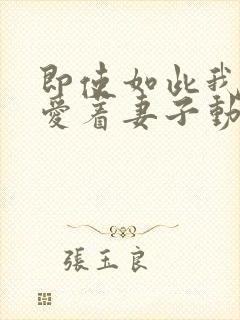 即使如此我
愛着妻子動
張玉良